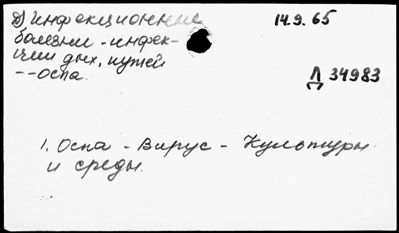 2) Инфекционные
болезни - инфек-
ции дых. путей
-- оспа.
14.9.65
Л 34983
1. Оспа - Вирус - Культуры
и среды.